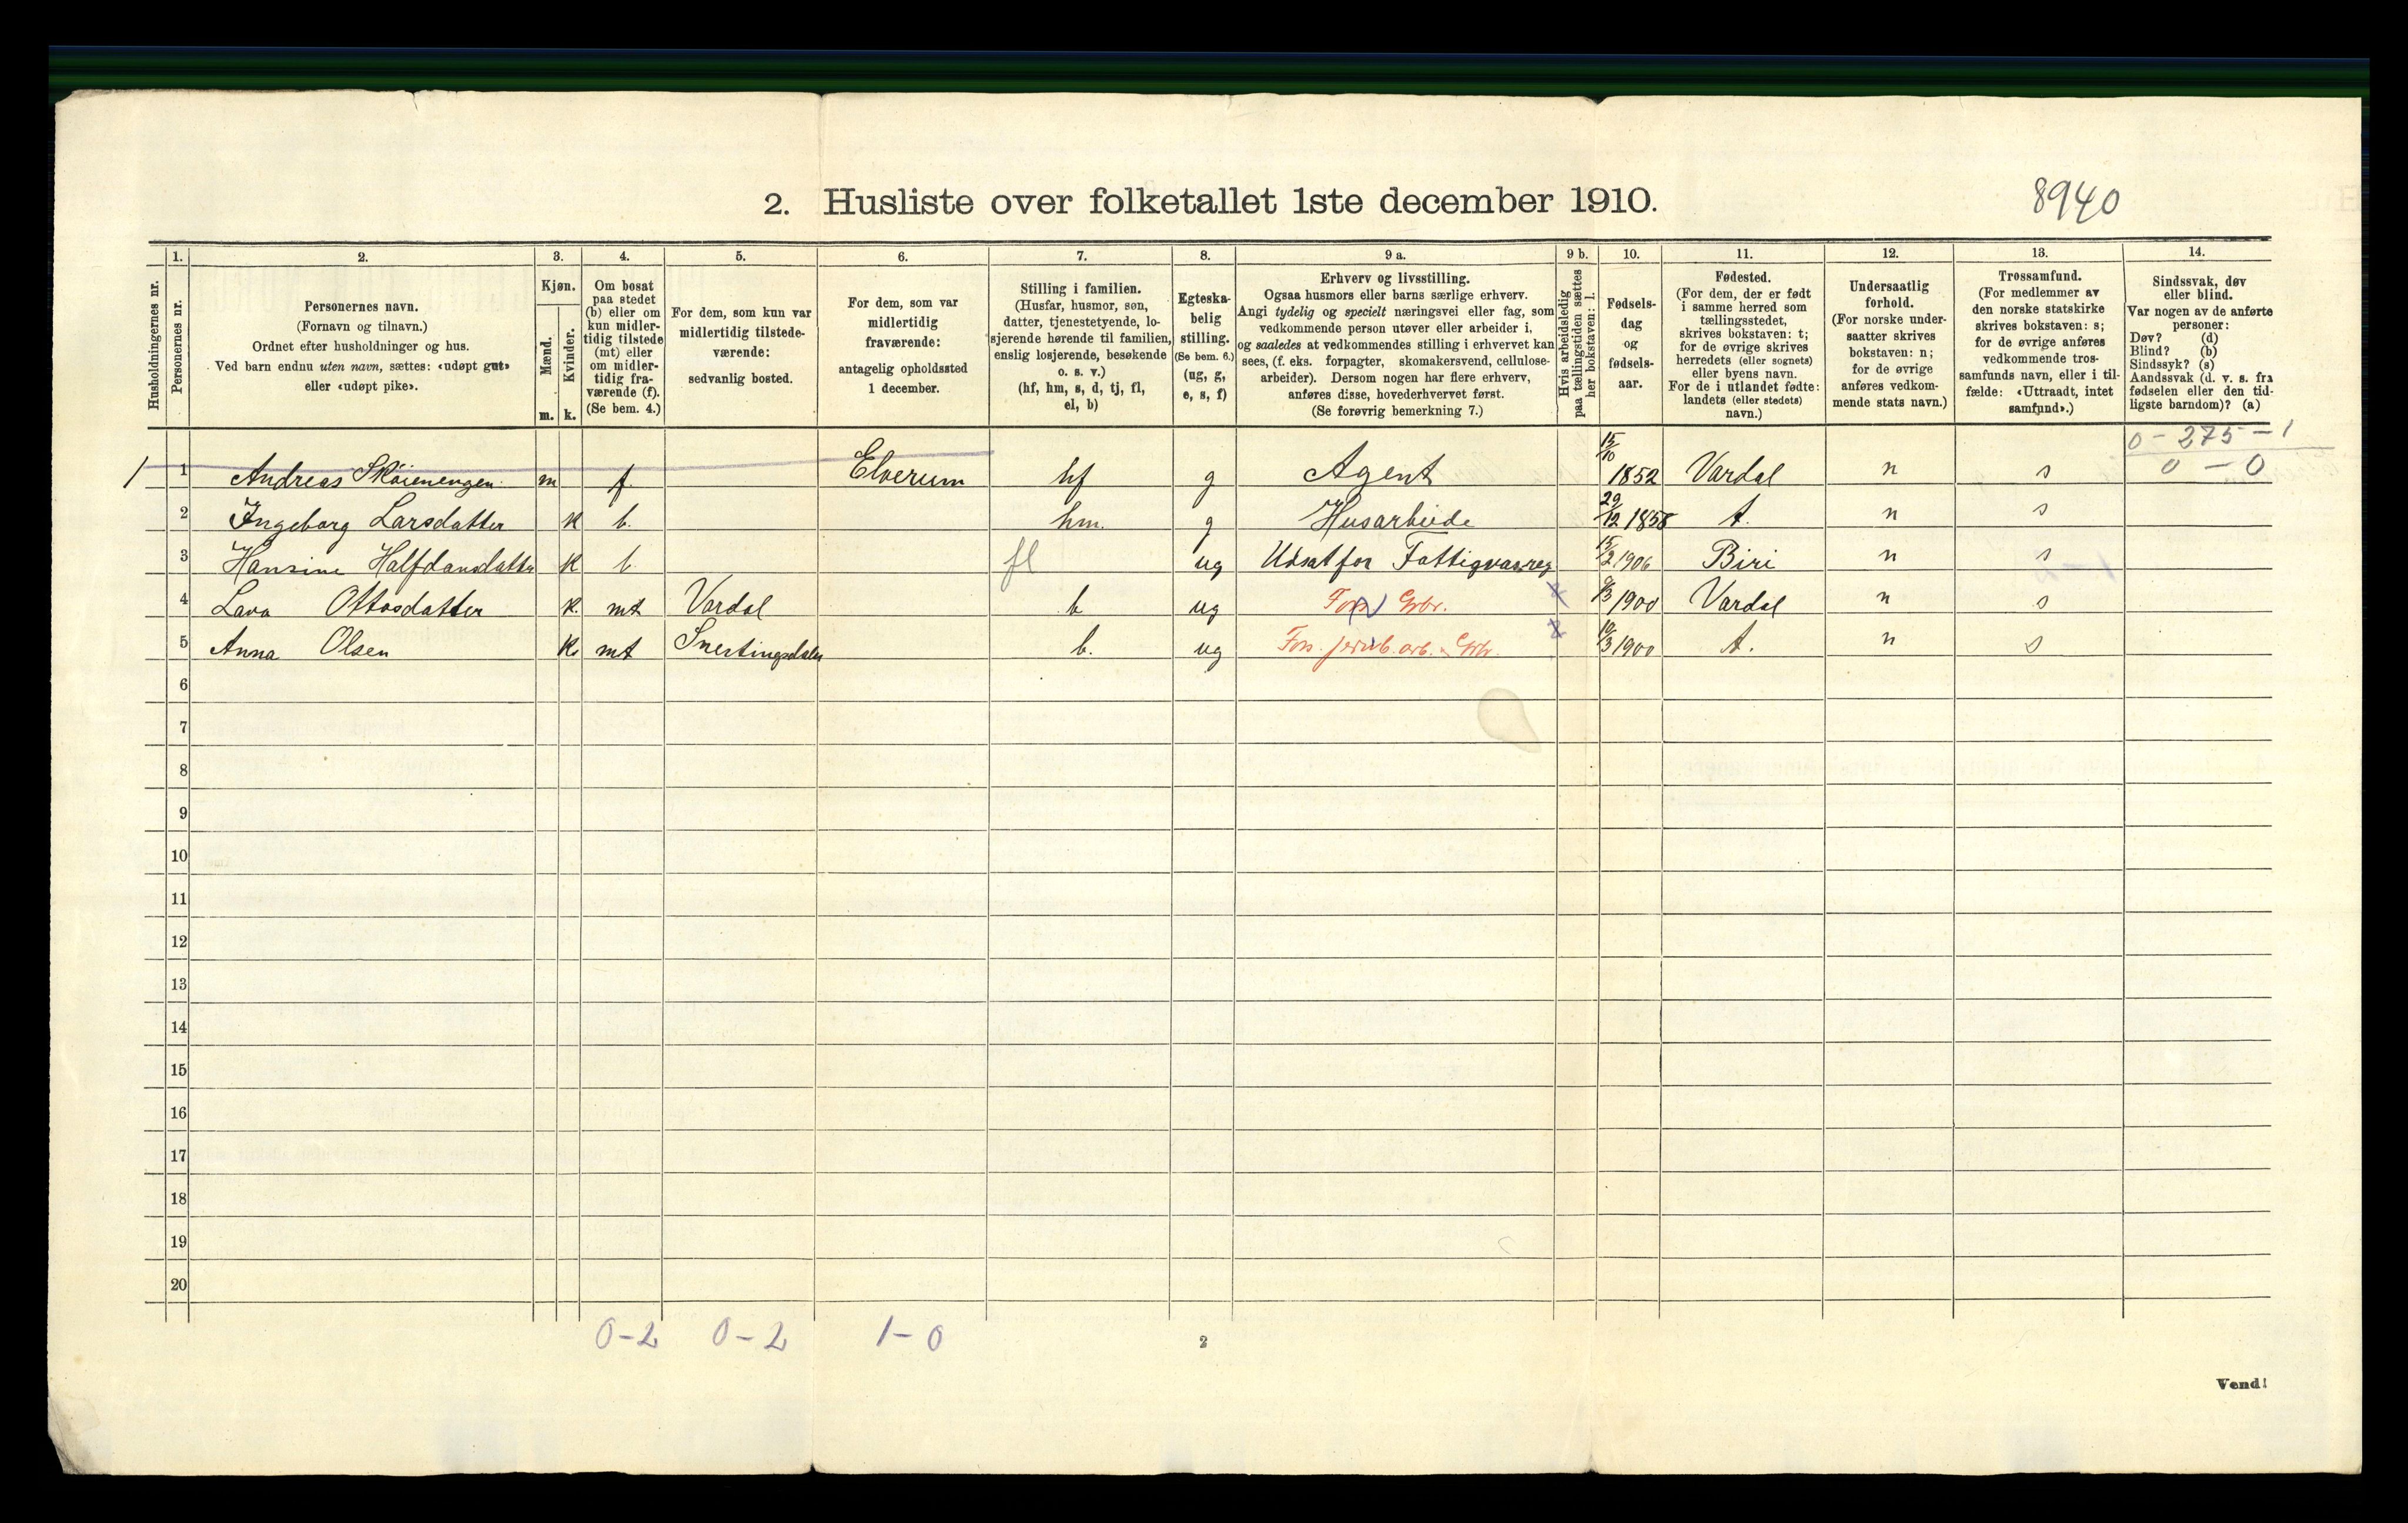 2. Husliste over folketallet 1ste december 1910.
8940
Husholdningernes nr.
1.
Personernes nr.
2.
Personernes navn.
(Fornavn og tilnavn.)
Ordnet efter husholdninger og hus.
Ved barn endnu uten navn, sættes: «udøpt gut»
eller «udøpt pike».
3.
Kjøn.
Mænd.
m.
Kvinder.
k.
4.
Om bosat
paa stedet
(b) eller om
kun midler-
tidig tilstede
(mt) eller
om midler-
tidig fra-
værende (f).
(Se bem. 4.)
5.
For dem, som kun var
midlertidig tilstede-
værende:
sedvanlig bosted.
6.
For dem, som var
midlertidig
fraværende:
antagelig opholdssted
1 december.
7.
Stilling i familien.
(Husfar, husmor, søn,
datter, tjenestetyende, lo-
sjerende hørende til familien,
enslig losjerende, besøkende
o. s. v.)
(hf, hm, s, d, tj, fl,
el, b)
8.
Egteska-
belig
stilling.
(Se bem. 6.)
(ug, g,
e, s, f)
9 a.
Erhverv og livsstilling.
Ogsaa husmors eller barns særlige erhverv.
Angi tydelig og specielt næringsvei eller fag, som
vedkommende person utøver eller arbeider i,
og saaledes at vedkommendes stilling i erhvervet kan
sees, (f. eks. forpagter, skomakersvend, cellulose-
arbeider). Dersom nogen har flere erhverv,
anføres disse, hovederhvervet først.
(Se forøvrig bemerkning 7.)
9 b.
Hvis arbeidsledig
paa tællingstiden sættes
her bokstaven: l.
10.
Fødsels-
dag
og
fødsels-
aar.
11.
Fødested.
(For dem, der er født
i samme herred som
tællingsstedet,
skrives bokstaven: t;
for de øvrige skrives
herredets (eller sognets)
eller byens navn.
For de i utlandet fødte:
landets (eller stedets)
navn.)
12.
Undersaatlig
forhold.
(For norske under-
saatter skrives
bokstaven: n;
for de øvrige
anføres vedkom-
mende stats navn.)
13.
Trossamfund.
(For medlemmer av
den norske statskirke
skrives bokstaven: s;
for de øvrige anføres
vedkommende tros-
samfunds navn, eller i til-
fælde: «Uttraadt, intet
samfund».)
14.
Sindssvak, døv
eller blind.
Var nogen av de anførte
personer:
Døv? (d)
Blind? (b)
Sindssyk? (s)
Aandssvak (d. v. s. fra
fødselen eller den tid-
ligste barndom)? (a)
0 - 275 - 1
0 - 0
1 1 Andreas Sköienengen m f. Elverum hf g Agent 15/10 1852 Vardal n s
2 Ingeborg Larsdatter k b. hm. g Husarbeide 29/12 1858 t. n s
3 Hansine Halfdansdatter k b fl ug Udsat for Fattigvæs. 15/2 1906 Biri n s
4 Ottosdatter k. mt Vardal b ug Fors. Grbr. 1900 Vardal n s
5 Anna Olsen k. mt Snertingsdalen b. ug Fors. jernb. arb. Grbr. 10/3 1900 t. n s
6
7
8
9
10
11
12
13
14
15
16
17
18
19
20
0-2 0-2 1-0
2
Vend!